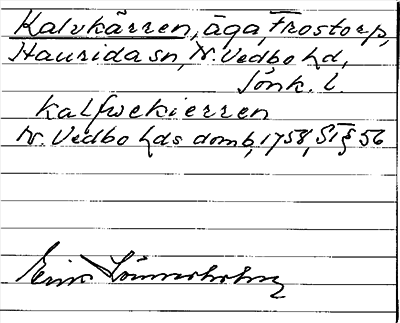 Kalvkärren, äga, Frostorp,
Hauridasn, N. Vedbo hd,
Jönk. l.
Kalfwekierren
N. Vedbo hds domb, 1758, ST § 56
Erik